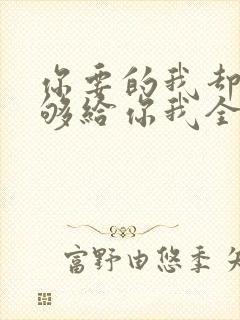 你要的我却
够给你我全
富野由悠季